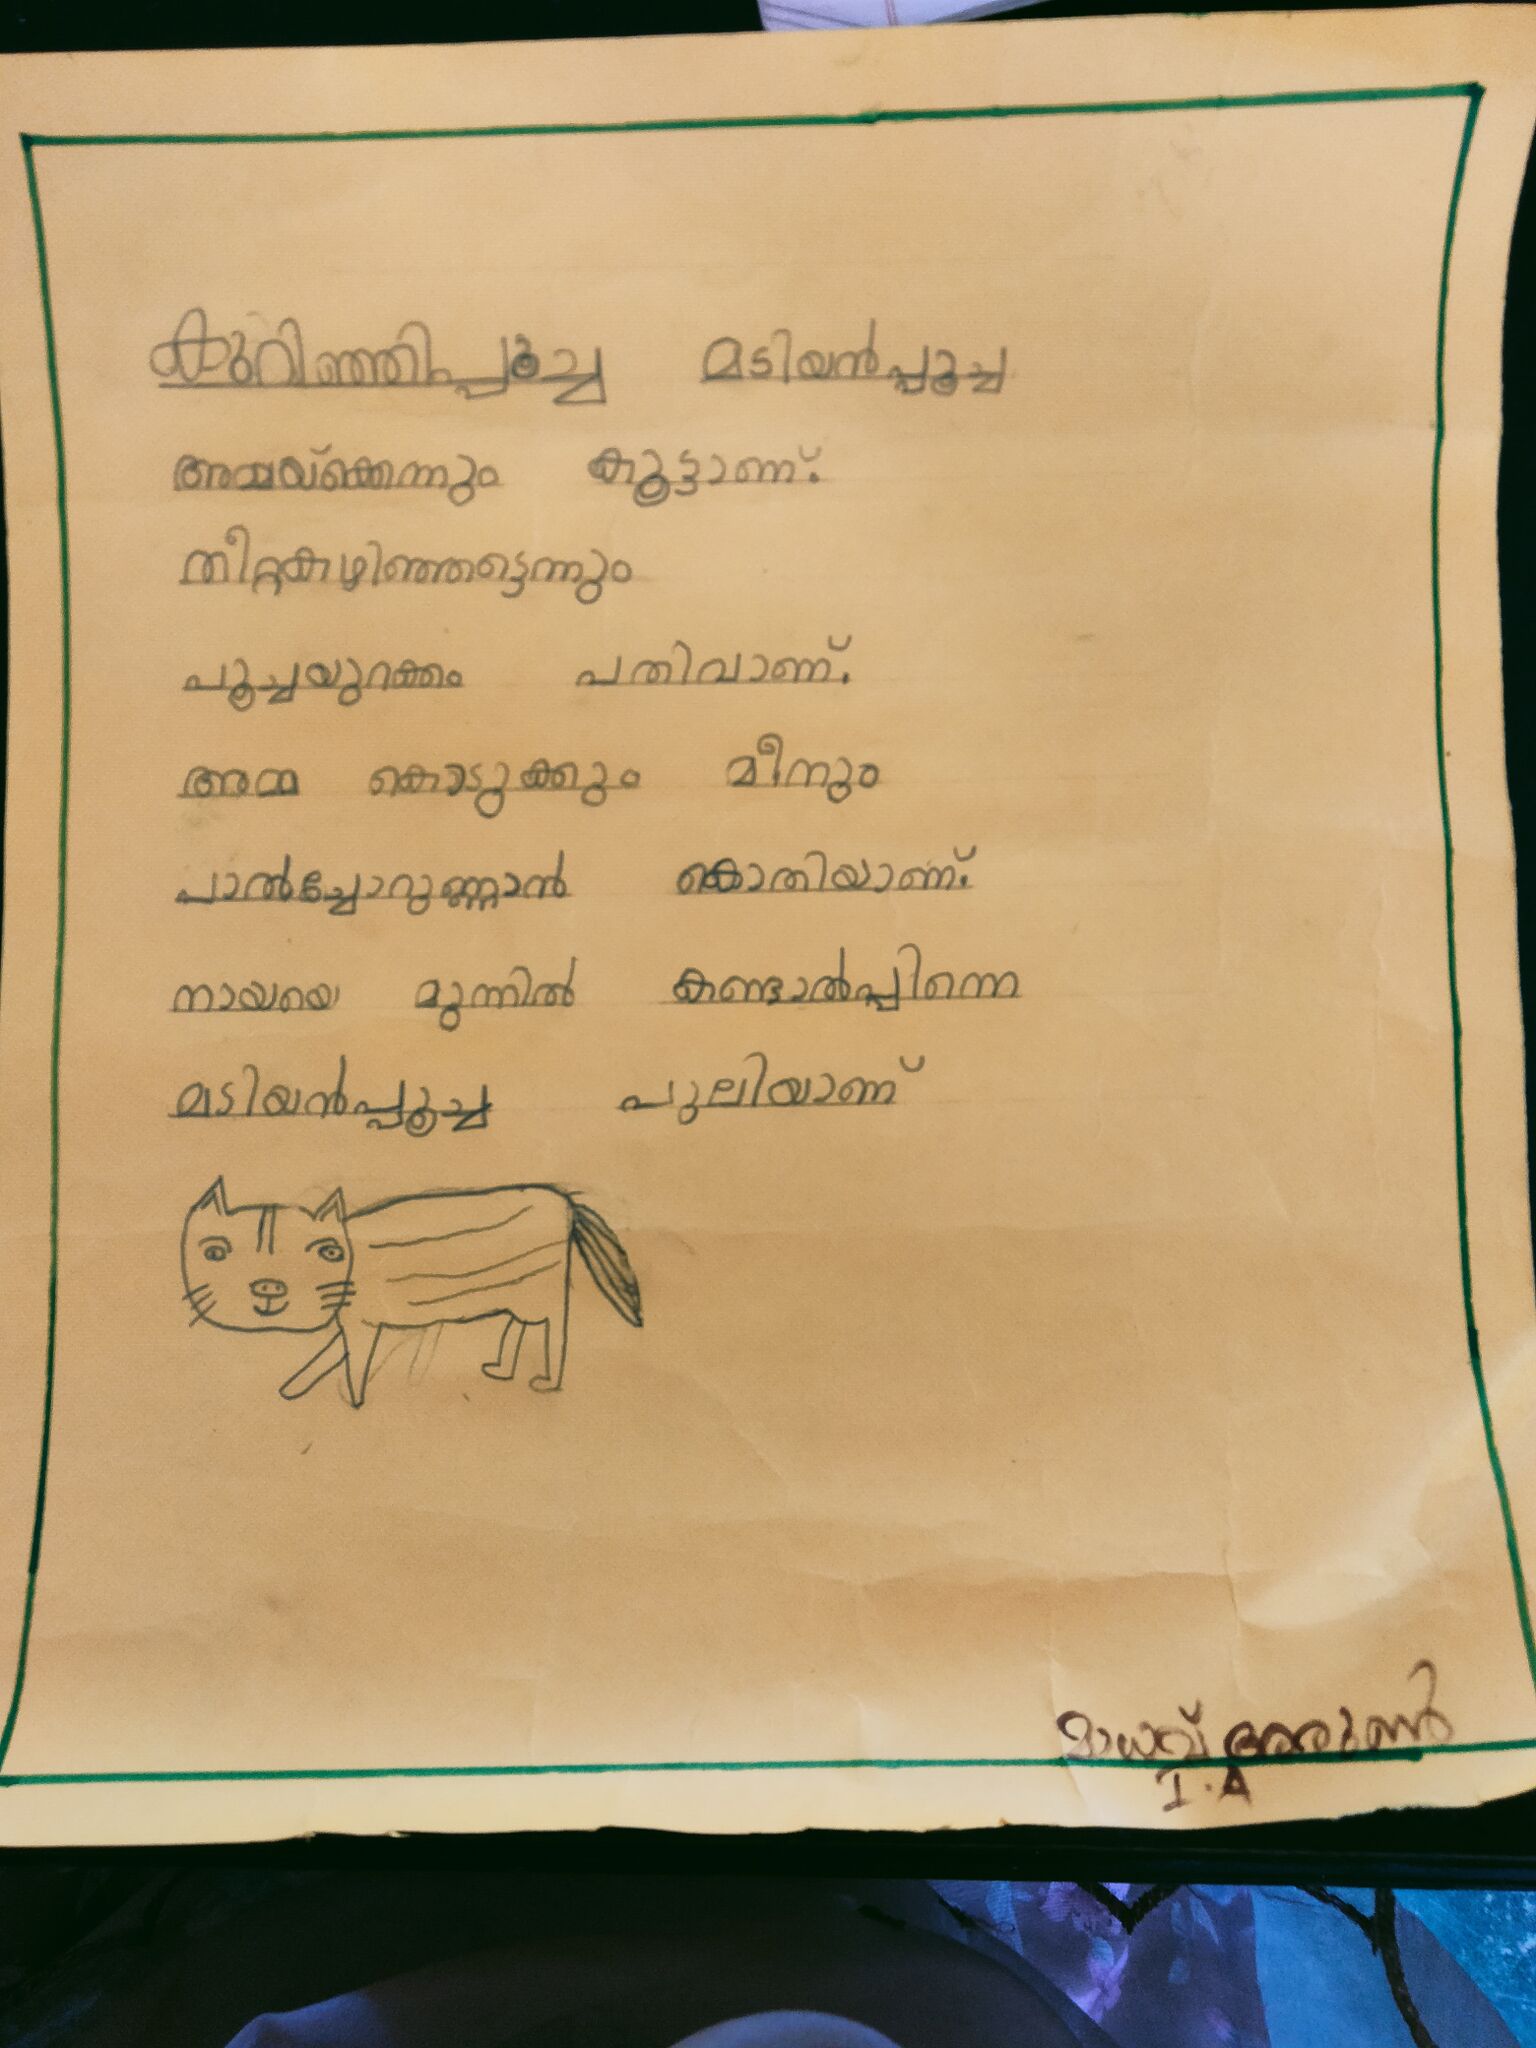 കുറിഞ്ഞിപ്പൂച്ച മടിയൻപ്പൂച്ച
അമ്മയ്ക്കെന്നും കൂട്ടാണ്.
തീറ്റകഴിഞ്ഞട്ടെന്നും
പൂച്ചയുറക്കം പതിവാണ്.
അമ്മ കൊടുക്കും മീനും
പാൽച്ചോറുണ്ണാൻ കൊതിയാണ്.
നായയെ മുന്നിൽ കണ്ടാൽപ്പിന്നെ
മടിയൻപ്പൂച്ച പുലിയാണ്
മാധവ് അരുൺ
I.A